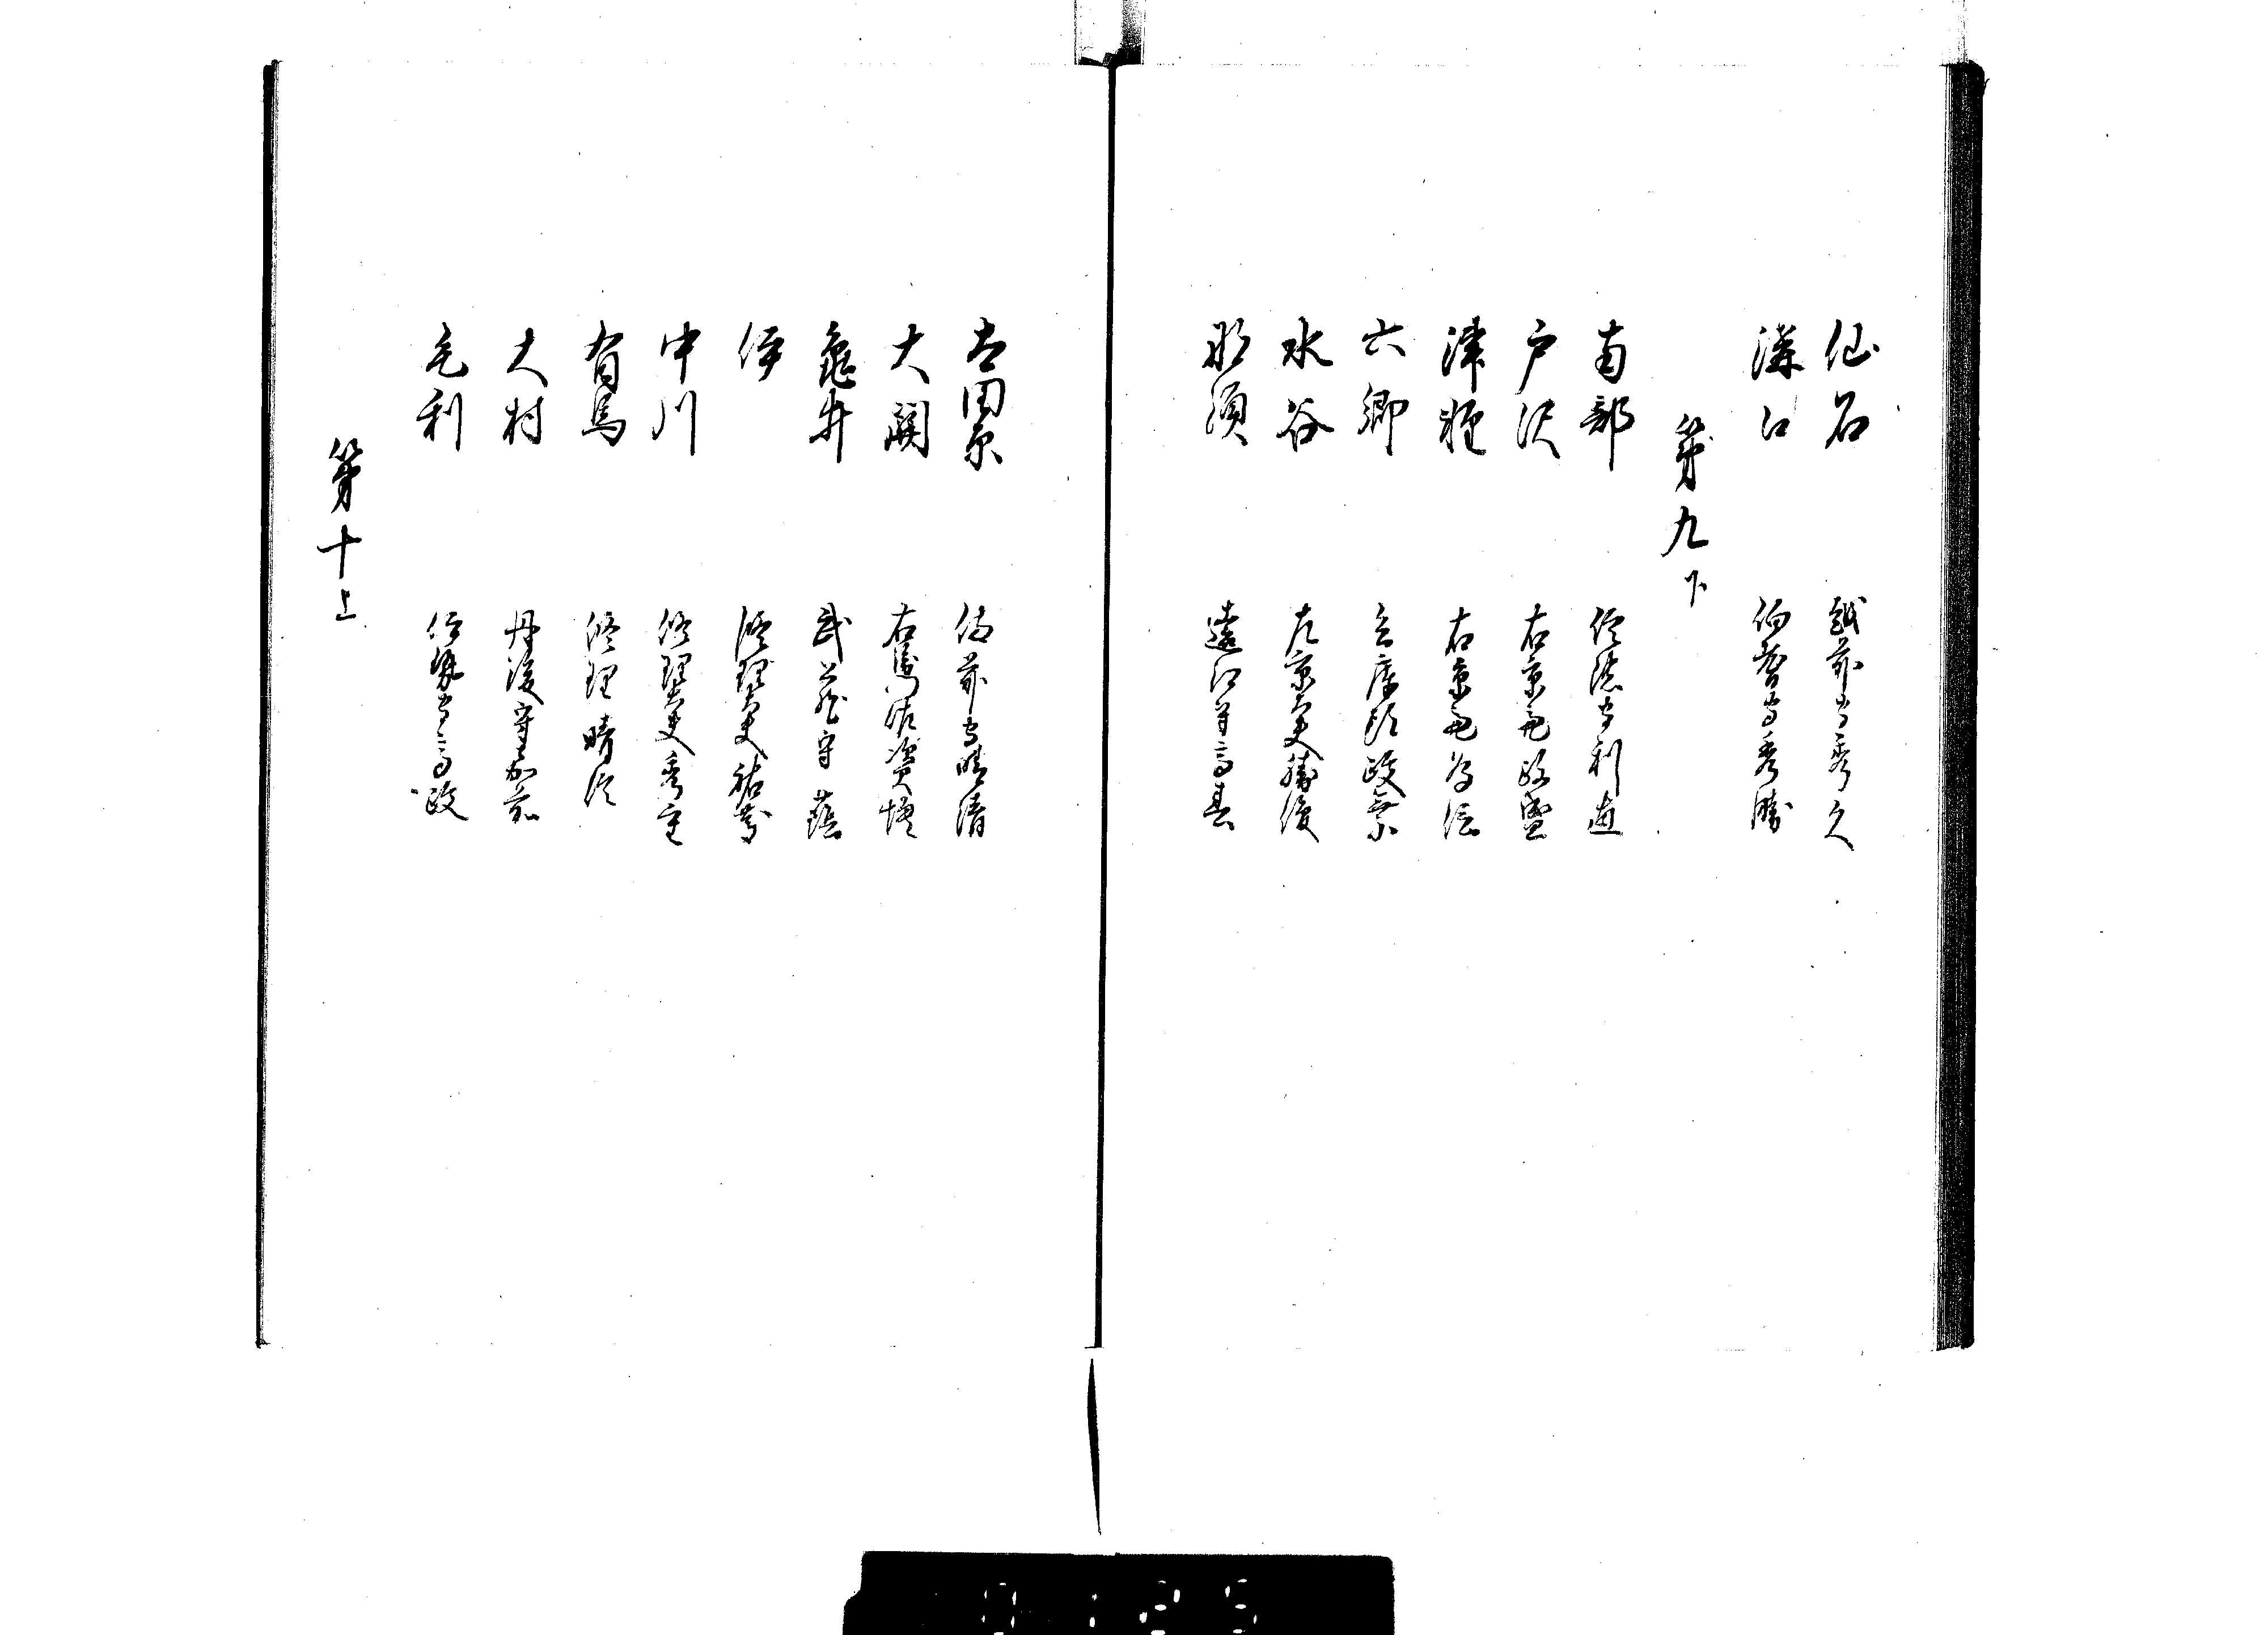 仙石 越前守秀久
溝口 伯耆守秀勝
第九下
南部 信濃守利直
戸沢 右京亮政盛
津軽 右京亮為信
六郷 兵庫頭政乗
水谷 左京大夫勝俊
那須 遠江守高
大田原 備前守晴清
大関 右馬佐資増
亀井 武蔵守茲
伊 修理大夫祐
中川 修理大夫秀重
有馬 修理晴信
大村 丹後守嘉前
毛利 伊勢守高政
第十上